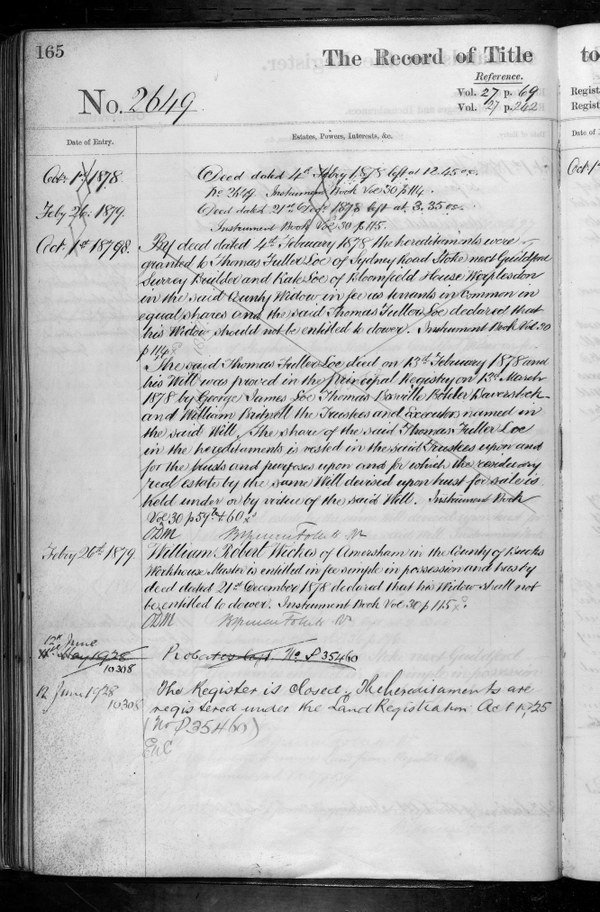 165
The Record of Title
to
Reference.
No. 2649.
Vol. 27 p. 69
Vol. 27 p. 242
Regist
Regist
Date of Entry.
Estates, Powers, Interests, &c.
Date of
Octr 1st 1878.
Deed dated 4th Febry 1878 left at 12.45
No 2649 Instrument Book Vol 30 p 114.
Feby 26. 1879.
Deed dated 21st Decr 1878 left at 3.35
Instrument Book Vol 30 p 115.
Oct 1st 1878.
Oct 1
By deed dated 4th February 1878 the hereditaments were
granted to Thomas Fuller Loe of Sydney Road Stoke next Guildford
Surrey Builder and Kate Loe of Bloomfield House Worplesdon
in the said County Widow in fee as tenants in common in
equal shares and the said Thomas Fuller Loe declared that
his Widow should not be entitled to dower. Instrument Book Vol 30
p 114.
The said Thomas Fuller Loe died on 13th February 1878 and
his Will was proved in the principal Registry on 13th March
1878 by George James Loe Thomas
and William Bridwell the Trustees and Executors named in
the said Will. The share of the said Thomas Fuller Loe
in the hereditaments is vested in the said Trustees upon and
for the trusts and purposes upon and for which the residuary
real estate by the same Will devised upon trust for sale is
held under or by virtue of the said Will. Instrument Book
Vol 30 p 59 & 60
Febry 26th 1879.
William Robert Weekes of Amersham in the County of Bucks
Workhouse Master is entitled in fee simple in possession and has by
deed dated 21st December 1878 declared that his Widow shall not
be entitled to dower. Instrument Book Vol 30 p 115.
12th June
May 1928
10308
No. P 35460
12 June 1928
10308
The Register is closed. The hereditaments are
registered under the Land Registration Act 1925
(No P 35460)